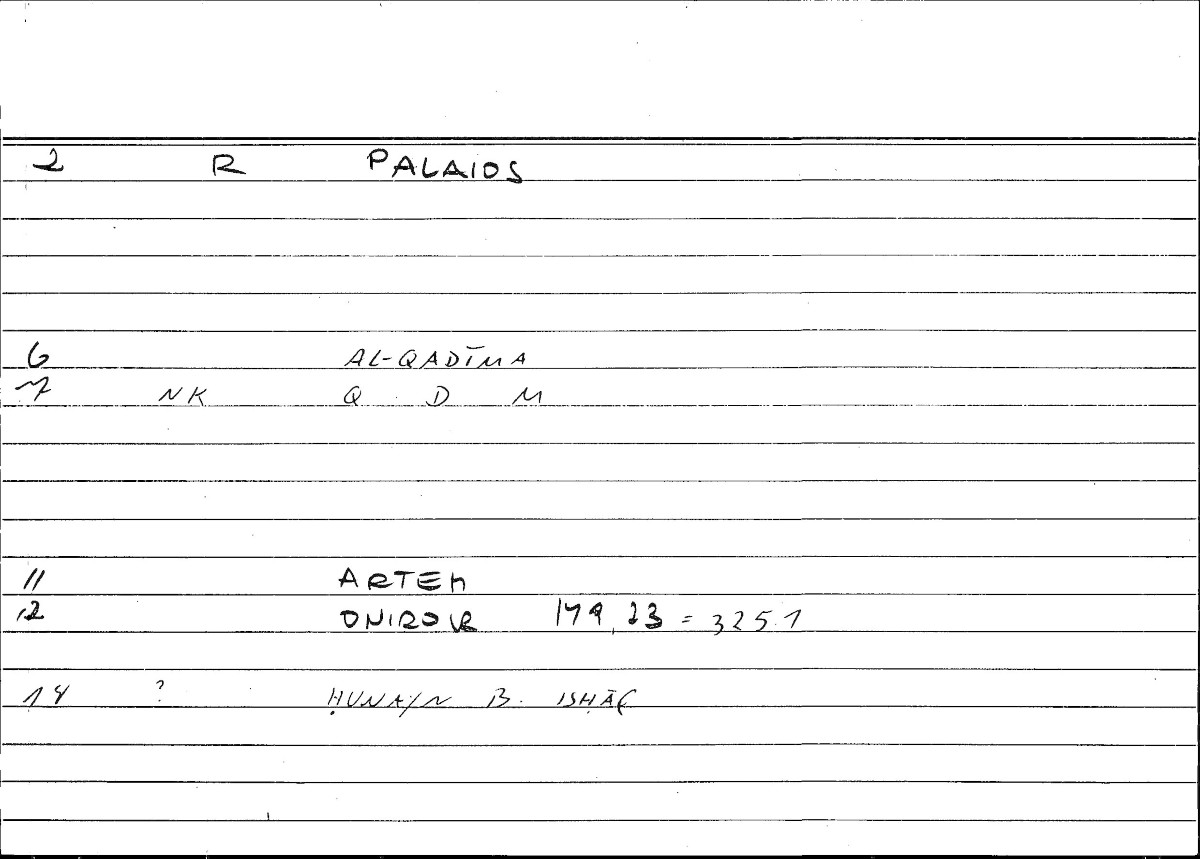 2 R PALAIOS
6 AL-QADĪMA
7 NK Q D M
11 ARTEM
12 ONIROKR 179,23 = 325.1
14 ? ḤUNAYN B. ISḤĀQ